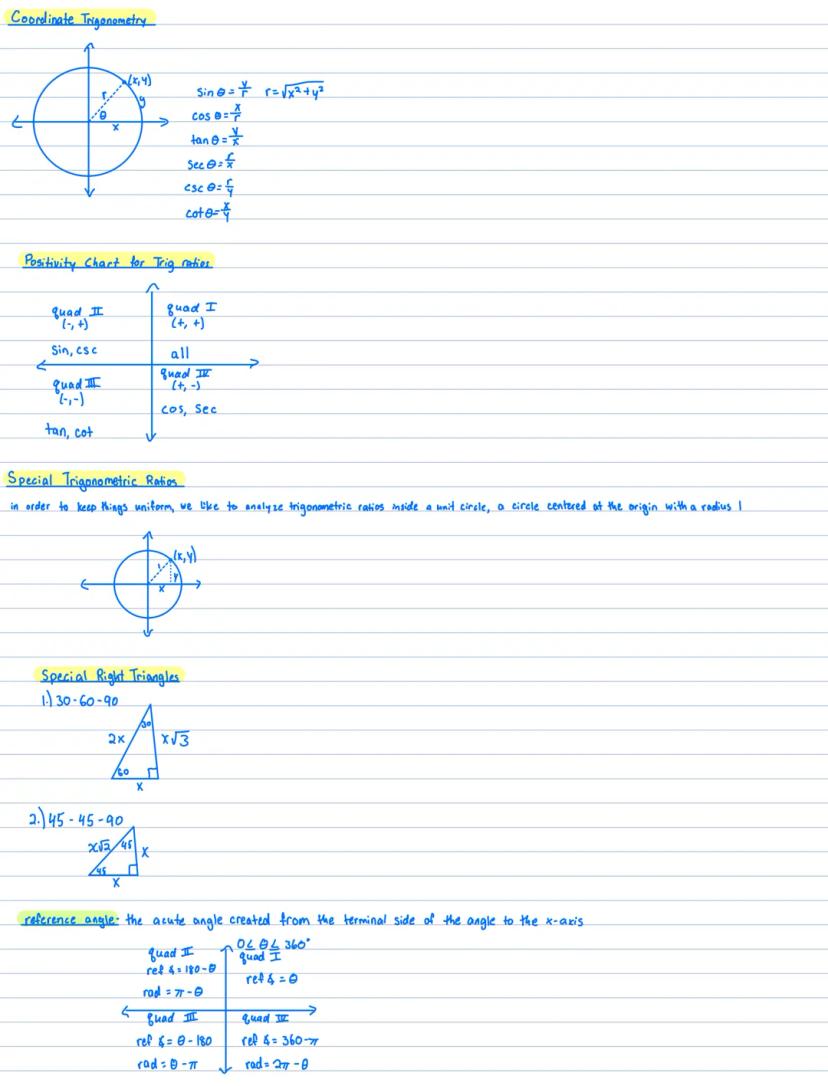 Coordinate Trigonometry
(x,y)
r
y
θ
x
sin θ = y/r   r = √x² + y²
cos θ = x/r
tan θ = y/x
sec θ = r/x
csc θ = r/y
cot θ = x/y
Positivity Chart for Trig ratios
quad II
(-, +)
sin, csc
quad I
(+, +)
all
quad III
(-,-)
tan, cot
quad IV
(+, -)
cos, sec
Special Trigonometric Ratios
in order to keep things uniform, we like to analyze trigonometric ratios inside a unit circle, a circle centered at the origin with a radius 1
(x,y)
1
y
x
Special Right Triangles
1.) 30-60-90
30
2x
x√3
60
x
2.) 45-45-90
x√2
45
x
45
x
reference angle- the acute angle created from the terminal side of the angle to the x-axis
0≤ θ ≤ 360°
quad II
ref ∡ = 180-θ
rad = π-θ
quad I
ref ∡ = θ
quad III
ref ∡ = θ - 180
rad = θ - π
quad IV
ref ∡ = 360-π
rad = 2π - θ